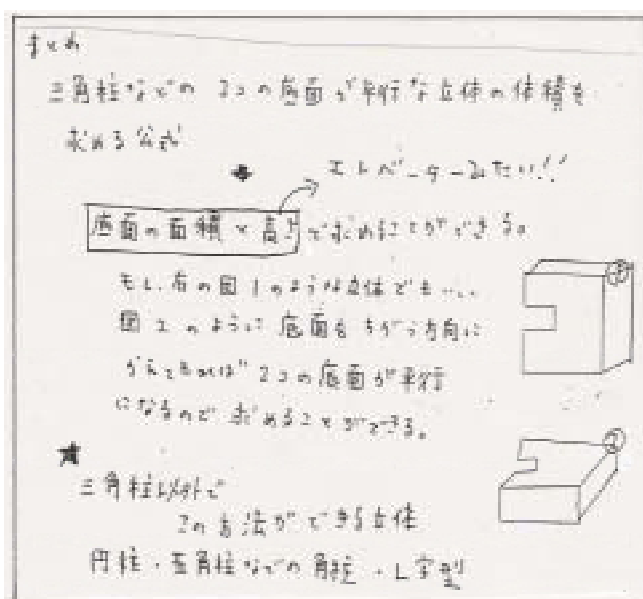 まとめ
三角柱などの 2つの底面が平行な立体の体積を
求める公式
エレベーターみたい!!
底面の面積×高さで求めることができる。
もし、右の図1のような立体でも...
図2のように底面をちがう方向に
かえてみれば 2つの底面が平行
になるので求めることができる。
①
②
★
三角柱以外で
この方法ができる立体
円柱・五角柱などの角柱・L字型